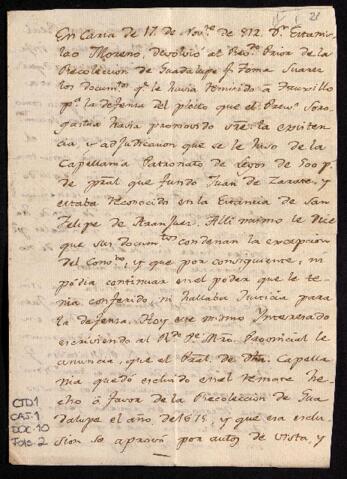 21
En Carta de 17 de Nov.e de 812. Dn. Estanis-
lao Moreno, devolvió al Rdo. Prior de la
Recoleccion de Guadalupe fr. Tomas Suarez
los docum.tos q.e le havia remitido a Truxillo
p.a la defensa del pleito que el
havia promovido sre. la existen
cia y adjudicacion que se le hiso de la
Capellania Patronato de Legos de 500 p.
de pral que fundo Juan de Zarate, y
estaba reconocido en la Estancia de San
Felipe de Aranjuez. Alli mismo le dice
que sus docum.tos condenan la excepcion
del Conv.to, y que por consiguiente, ni
podia continuar en el poder que le te
nia conferido, ni hallaba Justicia para
la defensa. Hoy ese mismo Interesado
escriviendo al R.do P.e Mro. Provincial le
anuncia, que el Pral. de dha. Capella
nia quedó excluido en el remate he
cho á favor de la Recoleccion de Gua
dalupe el año de 1675, y que era exclu
sion se aprovó por autos de vista, y
CTD1
CAJ:1
DOC:10
Fols:2